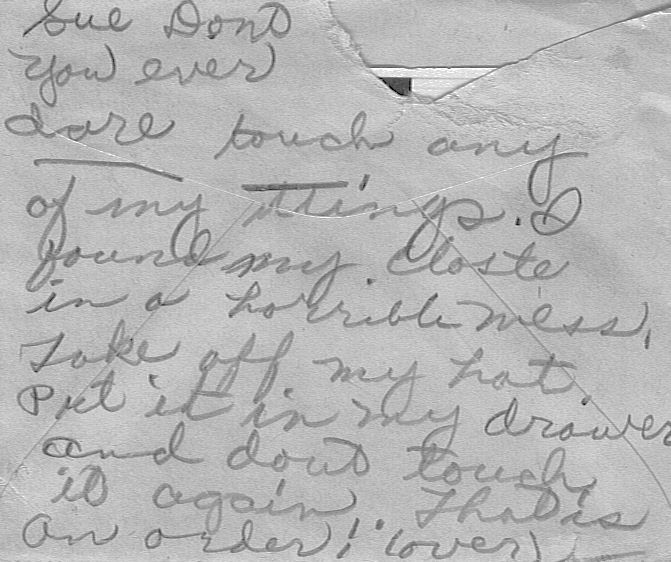 Sue Dont
you ever
dare touch any
of my ttings. I
found my closte
in a horrible mess.
Take off my hat.
Put it in my drawer
and dont touch
it again. That is
an order! (over)